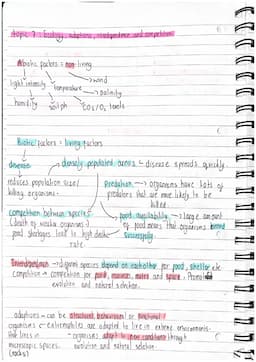 Topic 7 : Ecology, adaptions, interdependence and competition
Abiotic factors = non living
light intensity temperature wind
salinity
humidity soil ph CO2/O2 levels
Biotic factors = living factors
disease → densely populated areas = disease spreads quickly.
reduces population size/
killing organisms.
Predation → organisms have lots of
predators that are more likely to be
killed.
competition between species
(death of weaker organisms)
food shortages lead to high death
rate.
food availability → large amount
of food means that organisms breed
successfully
Interdependence → different species depend on each other for food, shelter etc
Competition = competition for food, mates and space
evolution and natural selection.
adaptions = can be structural, behavioural or functional
organisms - extremophiles are adapted to live in extreme environments
that lives in - organisms adapt to their conditions through
microscopic spaces. evolution and natural selection.
(rocks)